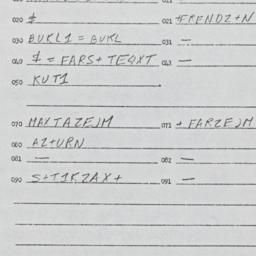 020 $ 021 $FRENDZ+N
030 BUKL1 = BUKL 031 —
040 $ = FARS+ TEQXT 043 —
050 KUT1
070 MAXTAZEJM 071 + FARZEJM
080 AZ+URN
081 — 082 —
090 S+T1KZAX+ 091 —